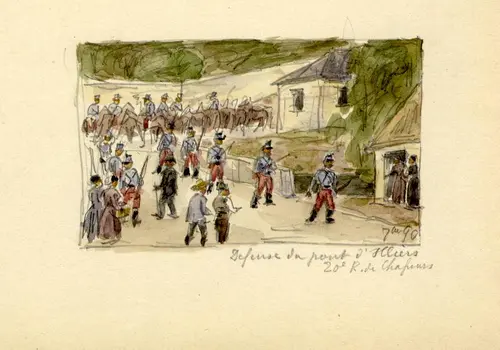 7bre 90
Defense du pont d'Illiers
20e R. de Chasseurs